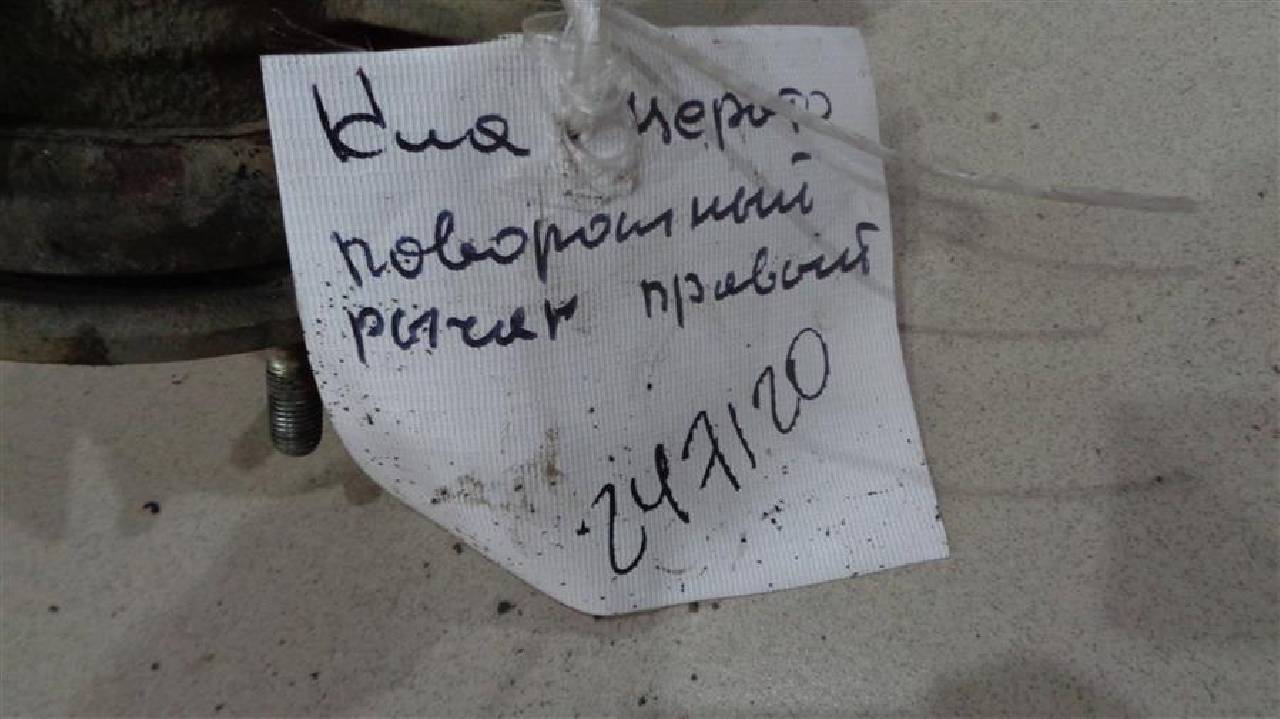 Киа церато
поворотный
рычаг правый
247120